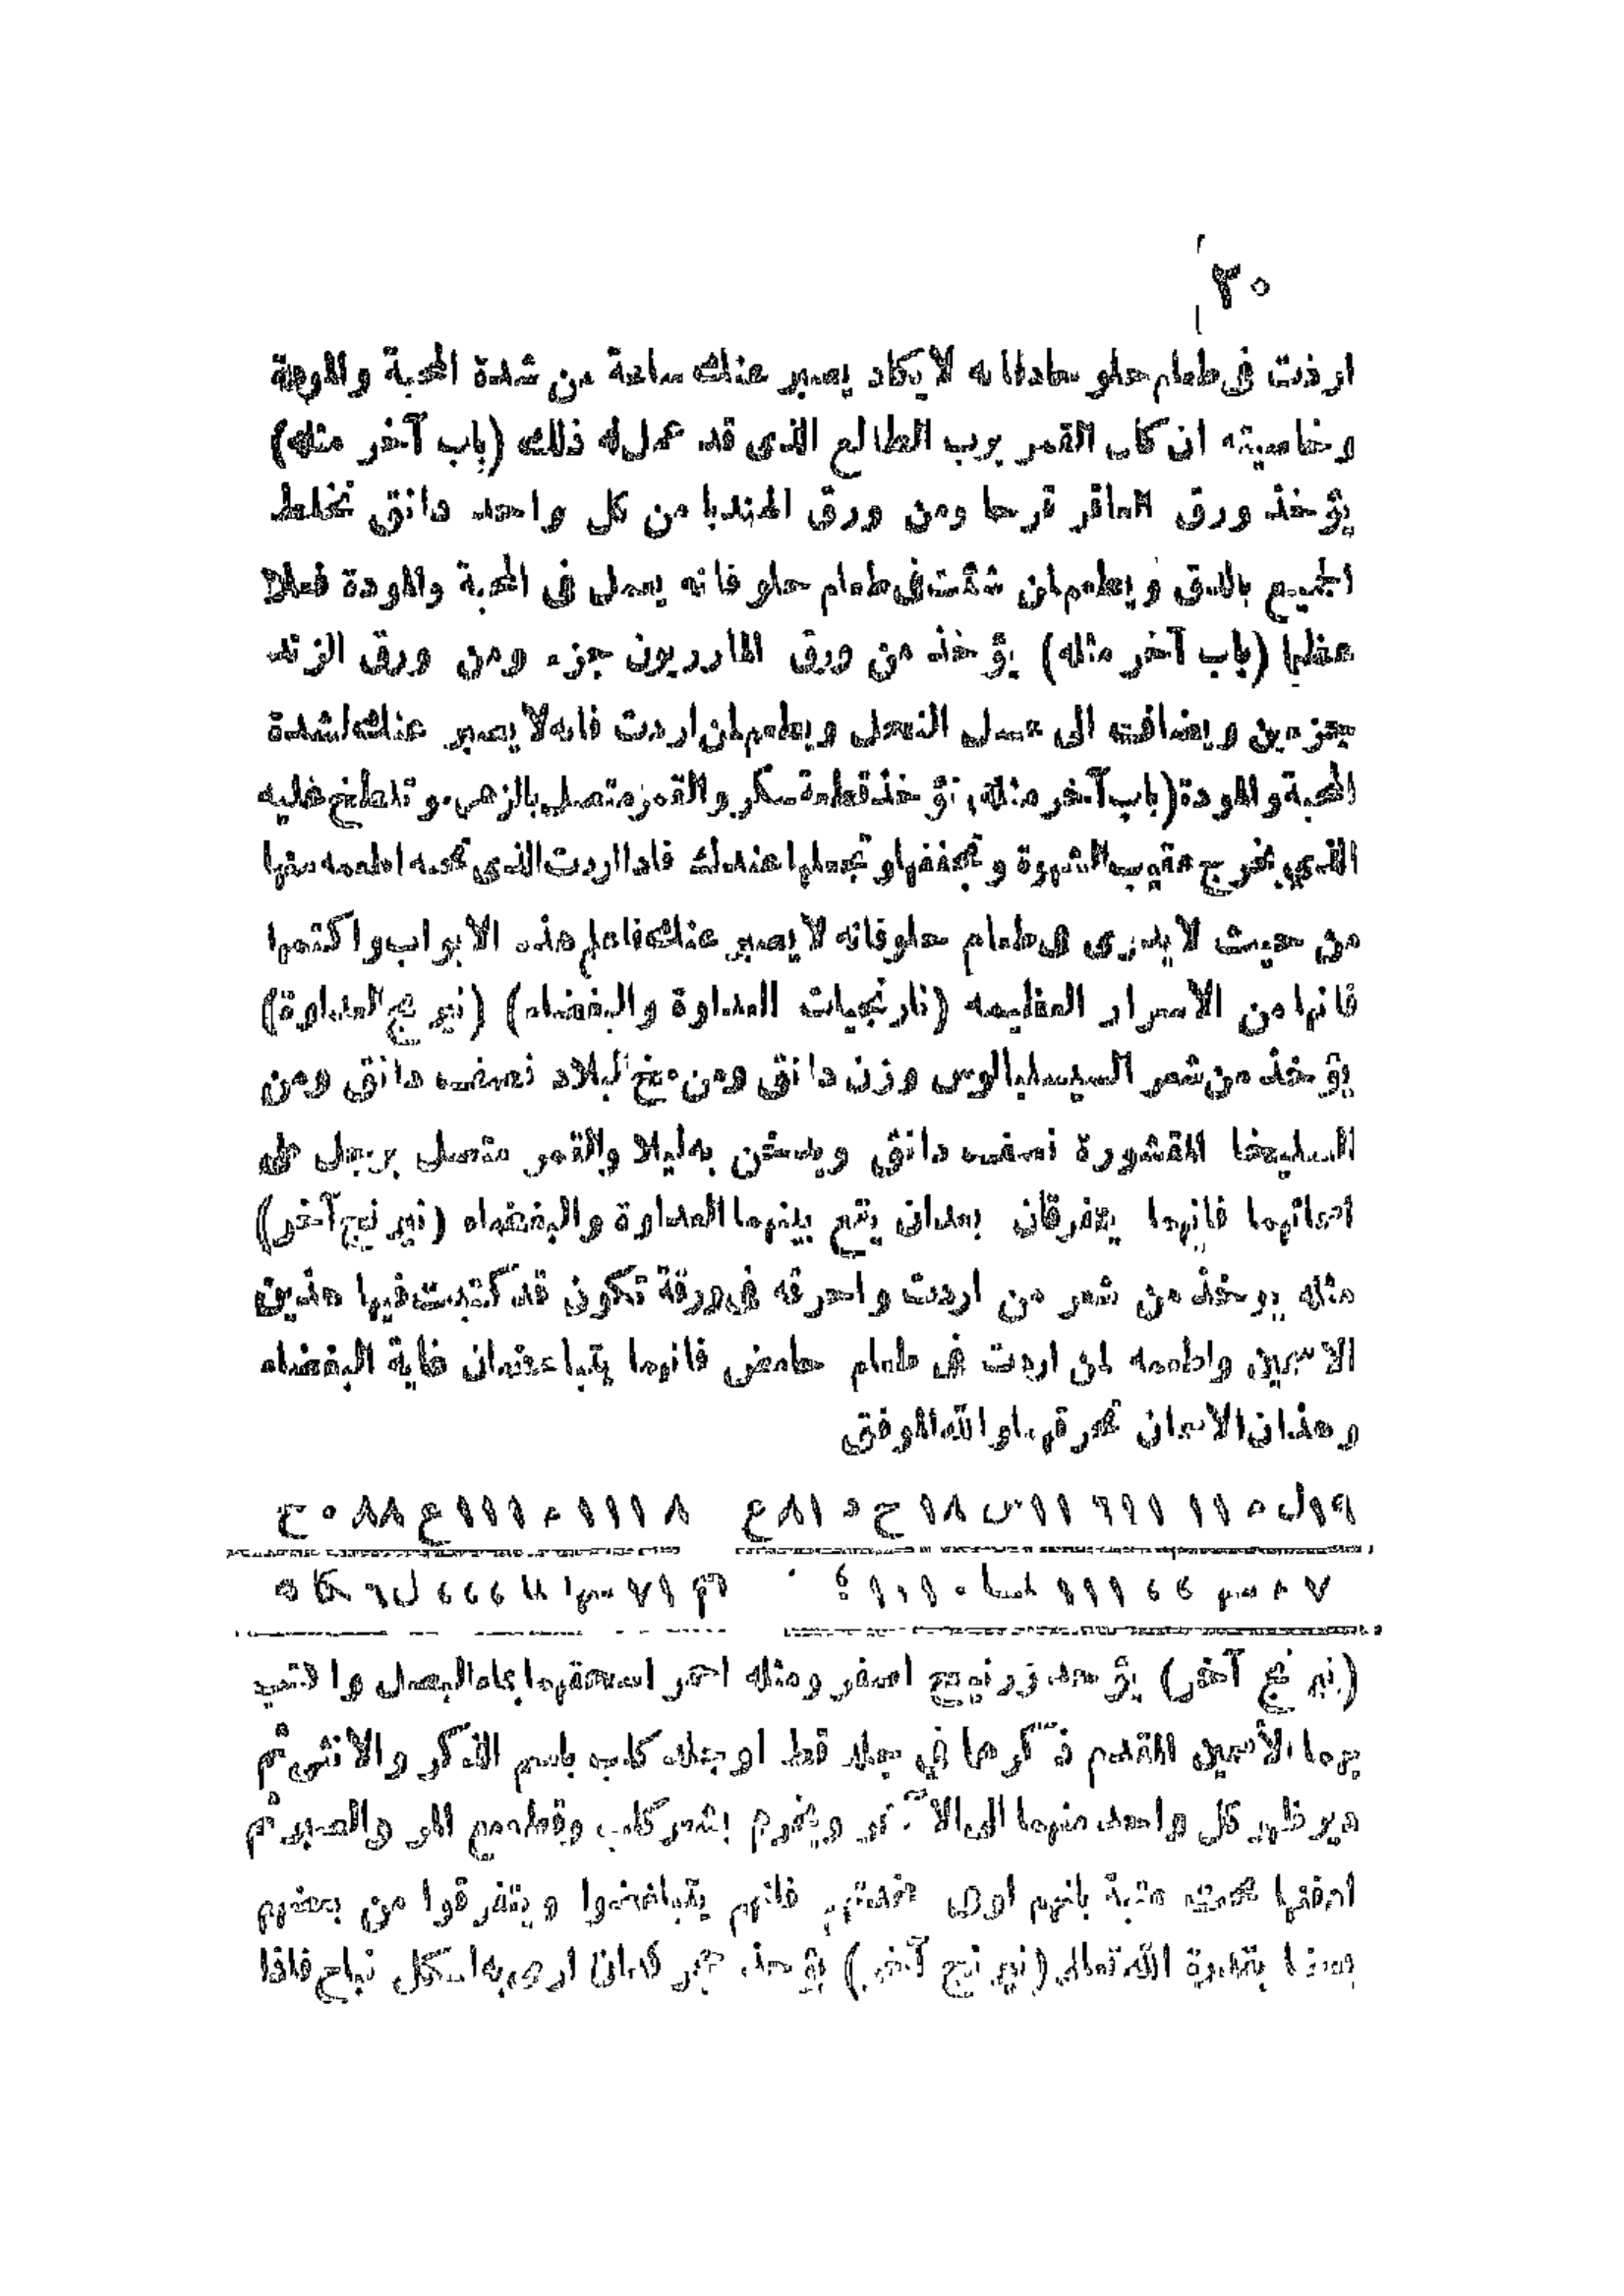 ٣٠
اردت فى طعام حلو فانه لا يكاد يصبر عنك ساعة من شدة المحبة والمودة
وخاصيته ان كان القمر برب الطالع الذى قد عمل له ذلك (باب آخر مثله)
يؤخذ ورق العاقر قرحا ومن ورق الهندبا من كل واحد دانق تخلط
الجميع بالدق ويطعم لمن شئت فى طعام حلو فانه يعمل فى المحبة والمودة فعلا
عظيما (باب آخر مثله) يؤخذ من ورق المازريون جزء ومن ورق الرند
جزءين ويضاف الى عسل النحل ويطعم لمن اردت فانه لا يصبر عنك لشدة
المحبة والمودة (باب آخر مثله) تؤخذ قطعة سكر والقمر متصل بالزهره وتلطخ عليه
الذى يخرج عقيب الشهوة وتجففها وتجعلها عندك فاذا اردت الذى تحبه اطعمه منها
من حيث لا يدرى فى طعام حلو فانه لا يصبر عنك فاعلم هذه الابواب واكتمها
فانها من الاسرار العظيمه (نارنجيات العداوة والبغضاء) (نيرنج العداوة)
يؤخذ من شعر وزن دانق ومن نصف دانق ومن
السليخا المقشورة نصف دانق ويدخن به ليلا والقمر متصل بزحل على
اسمائهما فانهما يتفرقان بعد ان يقع بينهما العداوة والبغضاء (نيرنج آخر)
مثله يوخذ من شعر من اردت واحرقه فى ورقة تكون قد كتبت فيها هذين
الاسمين واطعمه لمن اردت فى طعام حامض فانهما يتباغضان غاية البغضاء
وهذان الاسمان تحرقهما والله الموفق
(نيرنج آخر) يؤخذ زرنيخ اصفر ومثله احمر اسحقهما بماء البصل واكتب
بهما الاسمين المقدم ذكرها في جلد قط او جلد كلب باسم الذكر والانثى ثم
دير ظهر كل واحد منهما الى الآخر ويخرم بشعر كلب وقطعه مع المر والصبر ثم
ادفنها تحت عتبة بابهم او فانهم يتباغضوا ويتفرقوا من بعضهم
بعضا بقدرة الله تعالى (نيرنج آخر) يؤخذ حجر كان ارمى به لكل نباح فاذا